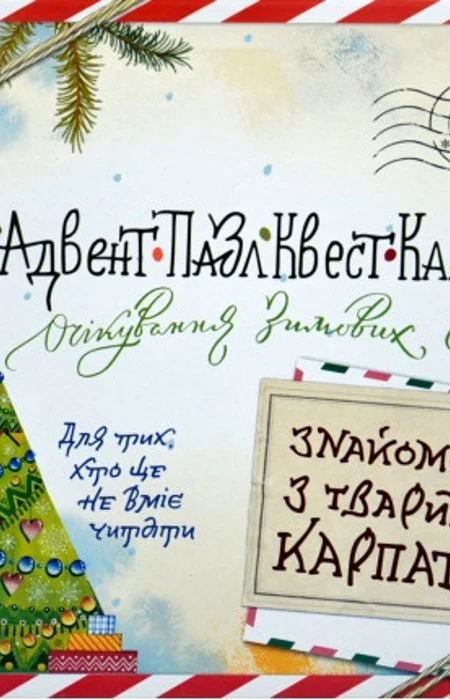 Адвент·Пазл·Квест·Ка
Очікування Зимових
Для тих,
хто ще
не вміє
читати
ЗНАЙОМ
З ТВАРИ
КАРПАТ